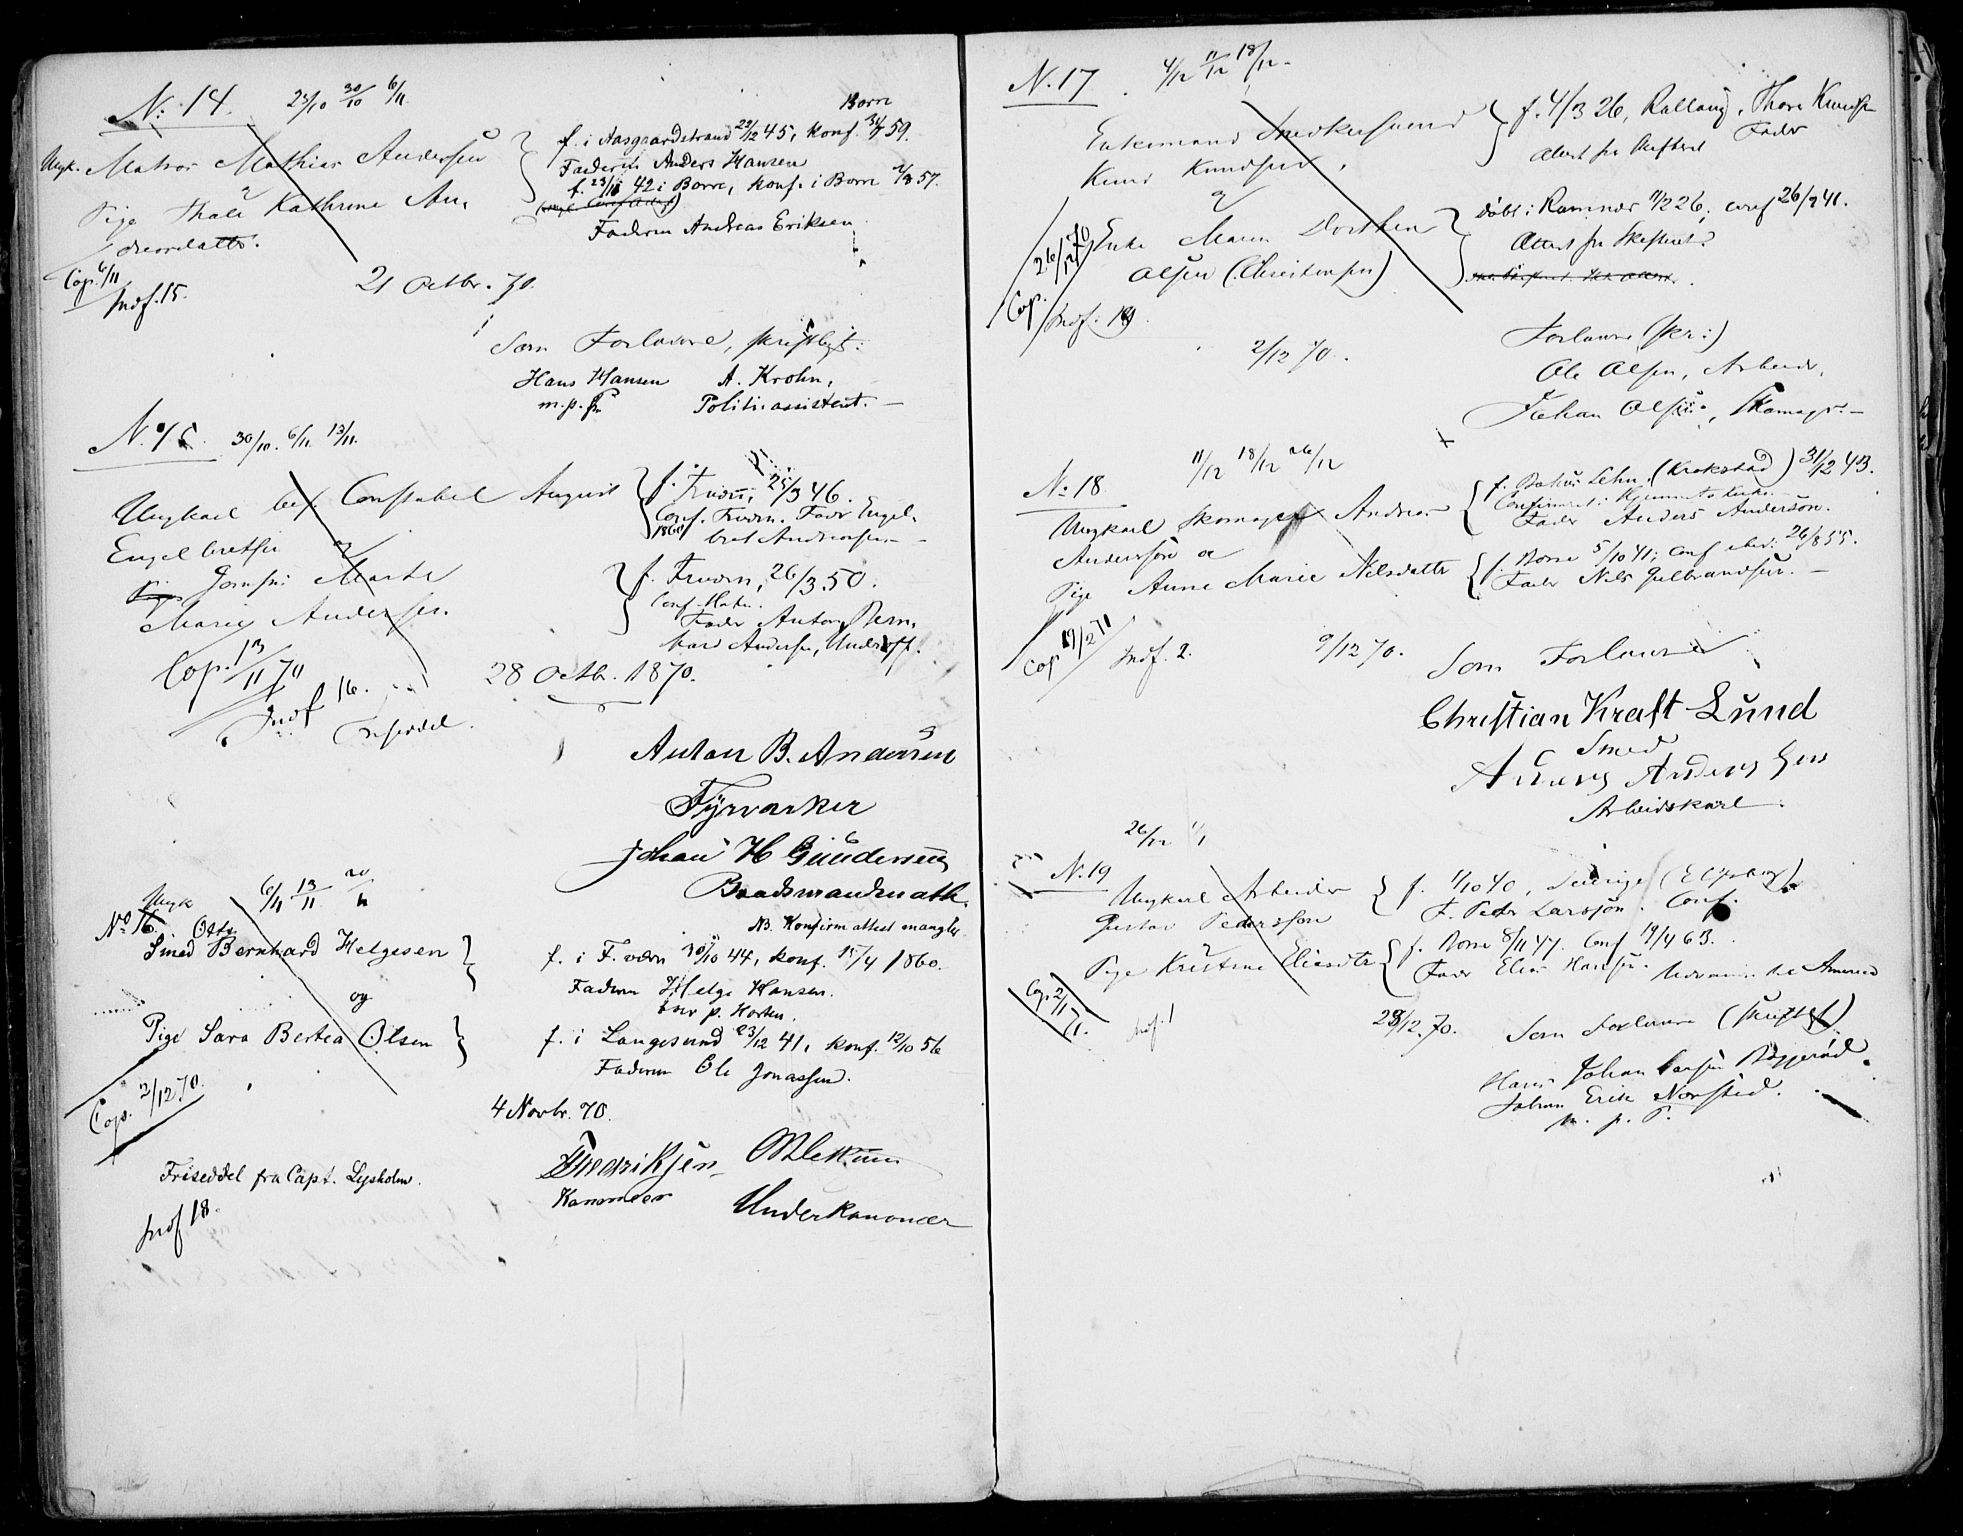 No. 14. 23/10 30/10 6/11
Borre
Ungk. Matros Mathias Andersen
f. i Aasgaardstrand 29/12 45, konf. 59.
Faderen Anders Hansen
og
f. 42 i Borre, konf. i Borre 57.
Pige Thale Kathrine An-
Faderen Andreas Eriksen
dreasdatter.
Cop. 6/11
Indf. 15.
21 Octbr. 70.
Som Forlovere, skriftligt:
Hans Hansen A. Krohn,
m. p. P. Politiassistent. —
No. 15. 30/10. 6/11 13/11.
Ungkarl Constabel August
f. 25/3 46.
Engelbretsen
Conf. Fader Engel-
1860
bret Andreasen
og
Jomfru Marthe
f. 26/3 50.
Marie Andersen.
Fader Anton Bern-
hard Andersen,
Cop. 13/11 70
Indf 16.
Friseddel.
28 Octb. 1870.
Anton B. Andersen
Fyrvarker
Johan H Gundersen
Baadsmandsmath.
NB. Konfirm attest mangler
Ungk 6/11 13/11 20/11
No. 16. Otto
Smed Bernhard Helgesen
f. i F. værn 30/10 44, konf. 15/4 1860.
Faderen Helge Hansen.
boer p. Horten.
og
Pige Sara Bertea Olsen
f. i Langesund 23/12 41, konf. 12/10 56
Faderen Ole Jonassen.
Cop. 2/12 70.
4 Novbr. 70.
Fredriksen
Kanoneer
Underkanoneer
Friseddel fra Capt. Lysholm.
Indf 18.
N. 17. 4/12 11/12 18/12
Enkemand
f. 4/3 26, Thore Knudsen
Fader
Knud Knudsen,
Attest fra Skifteret
og
Enke Maren Dorthea
døbt i Ramnæs 26, conf 26/9 41.
Olsen (Christensen)
Attest fra Skifteret.
Cop. 26/12 70
Indf. 19.
2/12 70.
Forlovere (skr:)
Ole Olsen, Arbeider,
Johan Olsen, Skomager. —
11/12 18/12 26/12
No. 18
Ungkarl Skomager Andreas
f. Bohus Lehn. (Krokstad) 31/12 43.
Andersson og
Fader Anders Anderson.
Pige Anne Marie Nilsdatter
f. Borre 5/10 41; Conf 26/8 55.
Fader Nils Gulbrandsen. —
Cop 19/2 71
Indf. 2.
9/12 70.
Som Forlovere
Christian Kraft Lund
Smed
Anders Anders Son
Arbeidskarl
26/12 1/1
N. 19
Ungkarl Arbeider
f. 1/10 40, Sverige (Elfsborg).
Gustav Pedersson
F. Peder Larsson. Conf.
og
Pige Kristine Eliasdtr
f. Borre 8/11 47. Conf 19/4 63.
Fader Elias Hansen. Udvandr. til America
Cop 2/1 71.
Indf. 1
28/12. 70.
Som Forlovere (skriftlgt)
Hans Johan
Johan Erik
m. p. P.